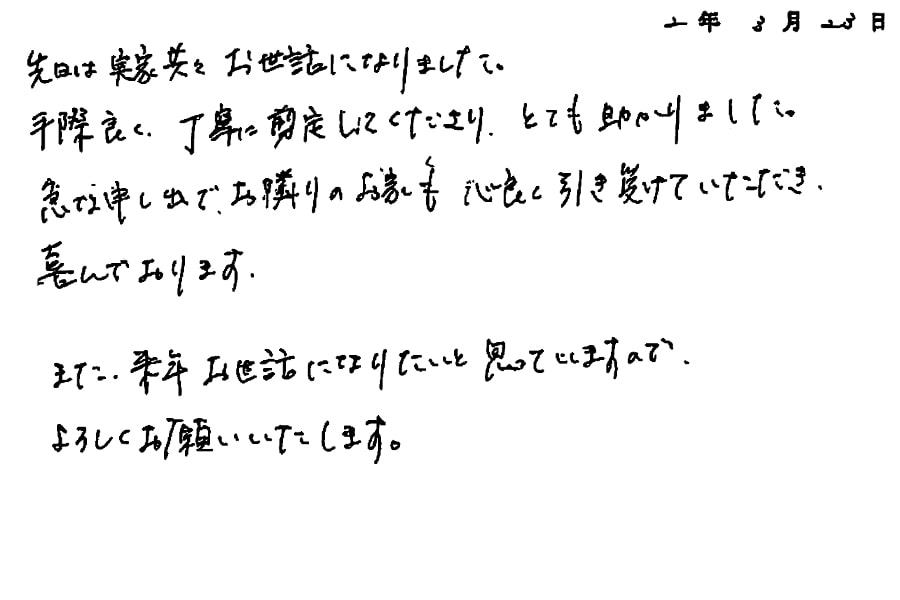 2年 3月 23日
先日は実家共々お世話になりました。
手際良く、丁寧に剪定してくださり、とても助かりました。
急な申し出で、お隣りのお家も心良く引き受けていただき、
喜んでおります。
また、来年お世話になりたいと思っていますので、
よろしくお願いいたします。